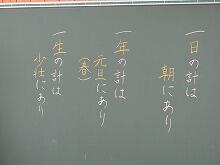 一日の計は
朝にあり
一年の計は
元旦にあり
(春)
一生の計は
少壮にあり